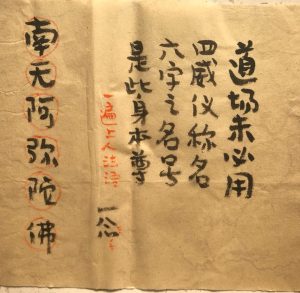 道场未必用
四威仪称名
六字之名号
是此身本尊
一遍上人法语
一念
南无阿弥陀佛